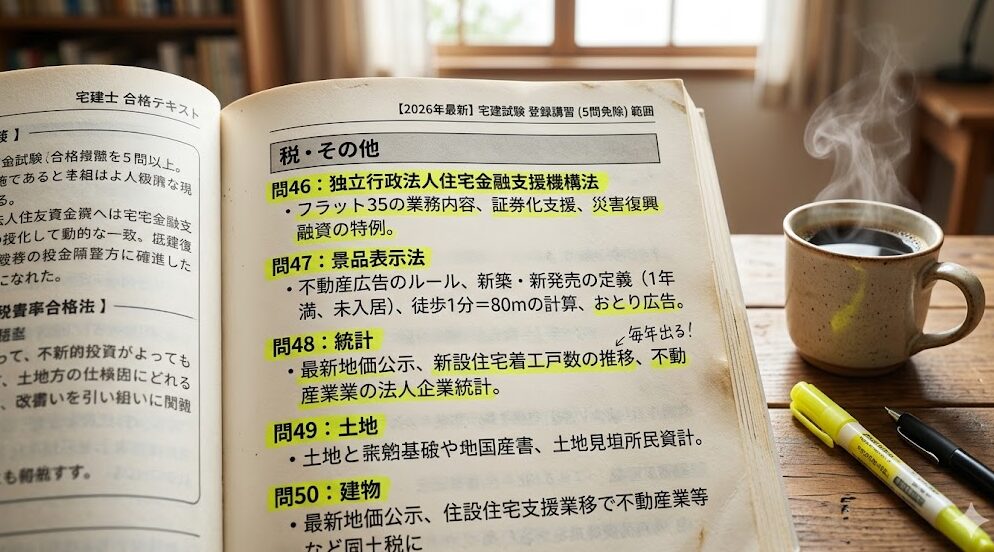 宅建士 合格テキスト
策 】
金試験(合格
を5問以上。
施であると
る。
法人住友資金
へは宅宅金融支
化して動的な一致。
の投金
方に確進した
になれた。
合格法 】
って、不新的投資がよっても
、土地方の仕様
にどれる
、改書いを引い組いに関
も
すす。
【2026年最新】宅建試験 登録講習 (5問免除) 範囲
税・その他
問46：独立行政法人住宅金融支援機構法
・フラット35の業務内容、証券化支援、災害復興
融資の特例。
問47：景品表示法
・不動産広告のルール、新築・新発売の定義（1年
満、未入居）、徒歩1分＝80mの計算、おとり広告。
毎年出る!
問48：統計
・最新地価公示、新設住宅着工戸数の推移、不動
産業業の法人企業統計。
問49：土地
・土地と
基破や地国産書、土地見
所民資計。
問50：建物
・最新地価公示、住設住宅支援業移で不動産業等
など同土税に